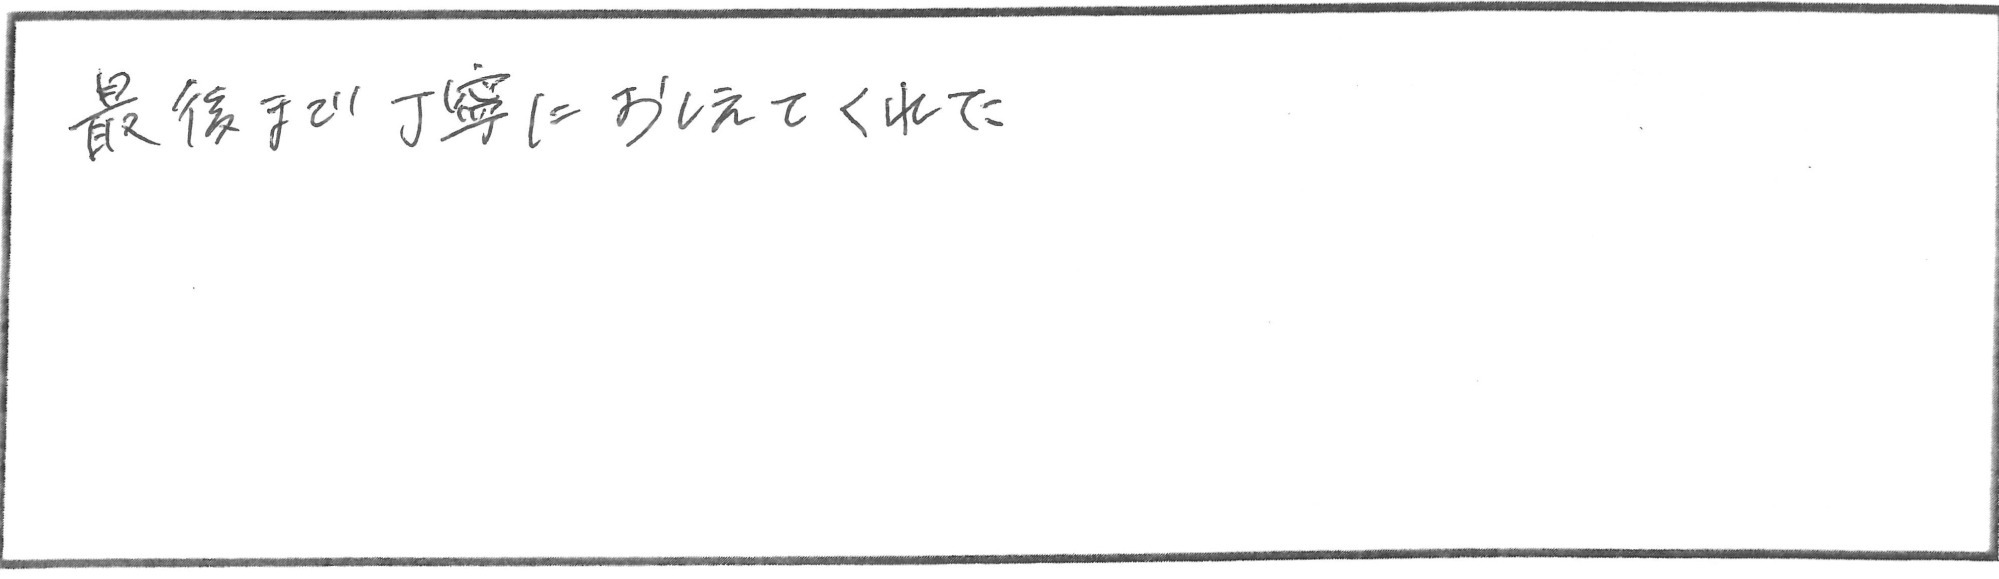 最後まで丁寧におしえてくれた